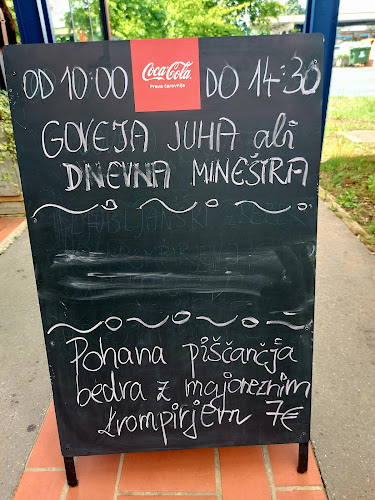 OD 10:00 Coca-Cola DO 14:30
Prava čarovnija
GOVEJA JUHA ali
DNEVNA MINEŠTRA
Pohana piščančja
bedra z majoneznim
krompirjem 7€